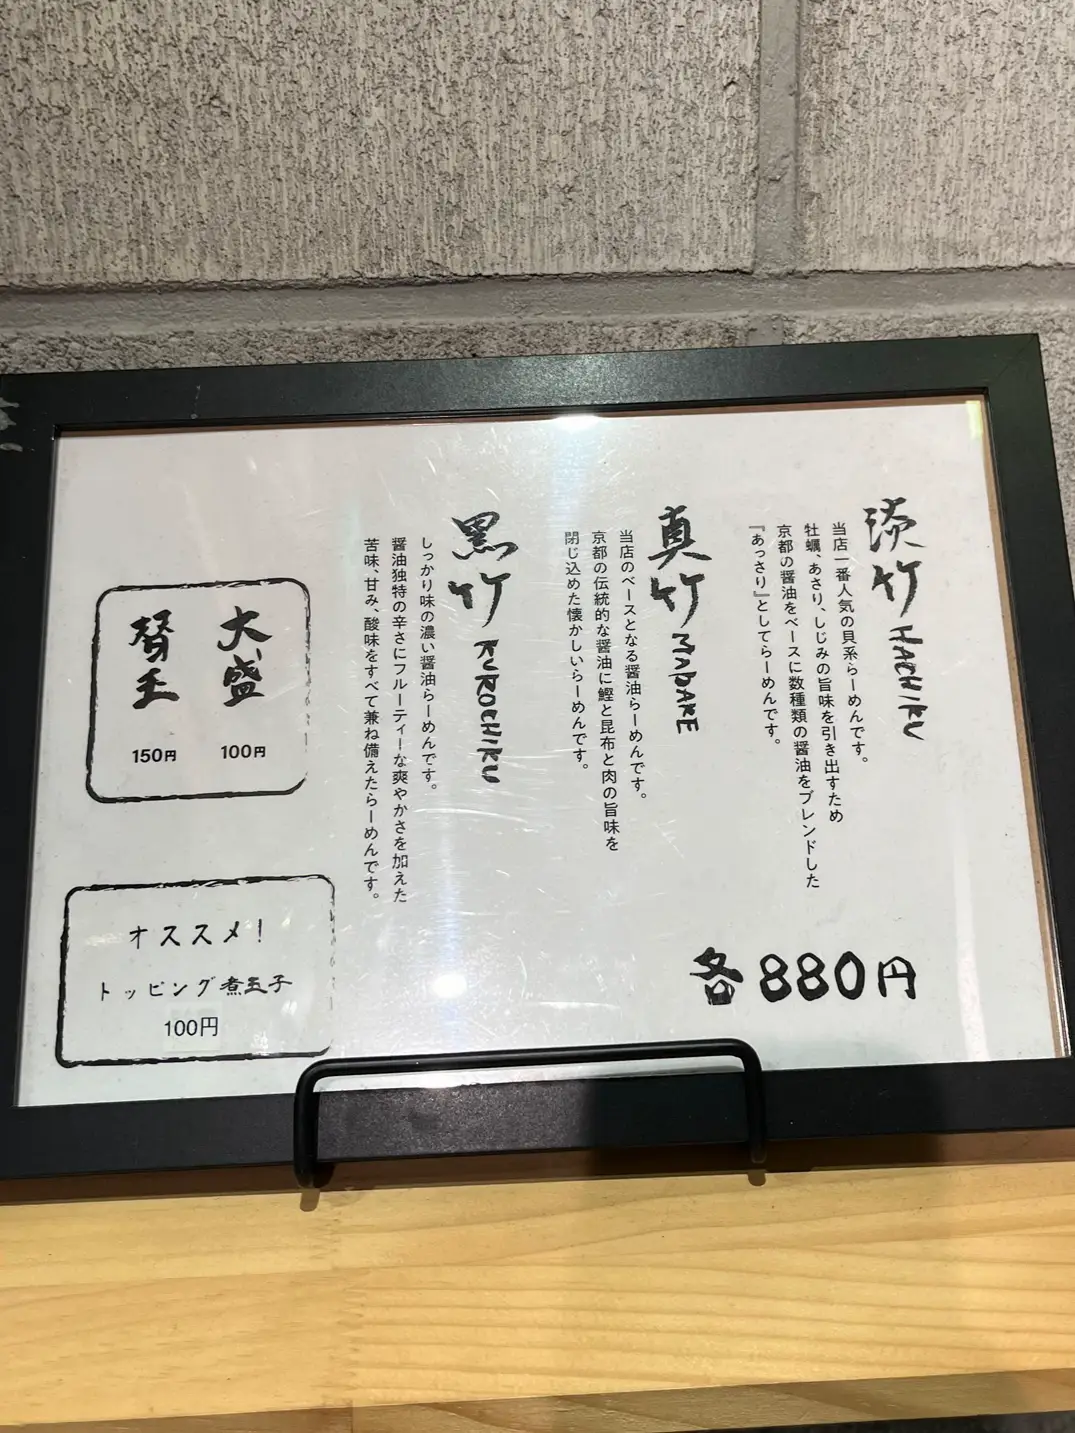 淡竹 HACHIKU
当店一番人気の貝系らーめんです。
牡蠣、あさり、しじみの旨味を引き出すため
京都の醤油をベースに数種類の醤油をブレンドした
『あっさり』としてらーめんです。
真竹 MADAKE
当店のベースとなる醤油らーめんです。
京都の伝統的な醤油に鰹と昆布と肉の旨味を
閉じ込めた懐かしいらーめんです。
黒竹 KUROCHIKU
しっかり味の濃い醤油らーめんです。
醤油独特の辛さにフルーティーな爽やかさを加えた
苦味、甘み、酸味をすべて兼ね備えたらーめんです。
各880円
大盛
100円
替玉
150円
オススメ!
トッピング煮玉子
100円